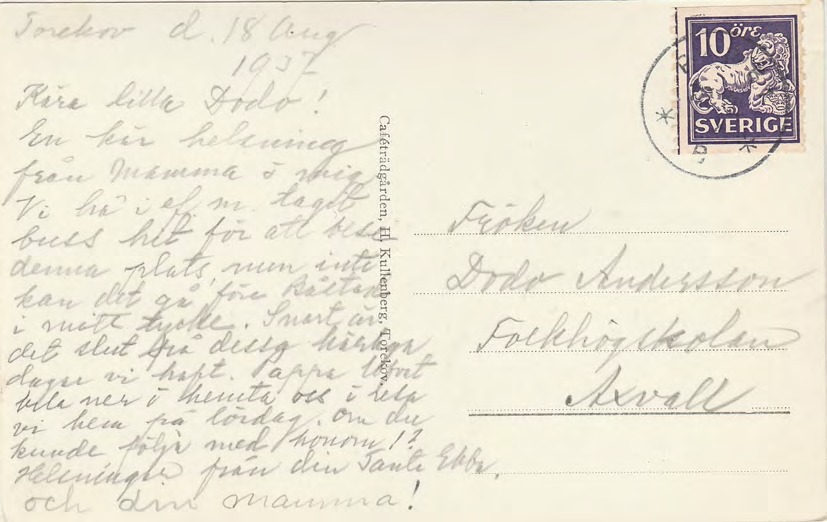 Torekov d. 18 Aug
1937
Kära lilla Dodo!
En kär helsning
från Mamma o mig
Vi ha i ef. m. taget
buss hit för att bese
denna plats, men inte
kan det gå före Båstad
i mitt tycke. Snart är
det slut på dessa härliga
dagar vi haft. Pappa
bila ner o hemta oss o resa
vi hem på lördag. Om du
kunde följa med honom!?
Helsningar från din Tante Ebba.
och din mamma!
Cafèträdgården, H. Kullenberg, Torekov.
10 öre
SVERIGE
Fröken
Dodo Andersson
Folkhögskolan
Axvall